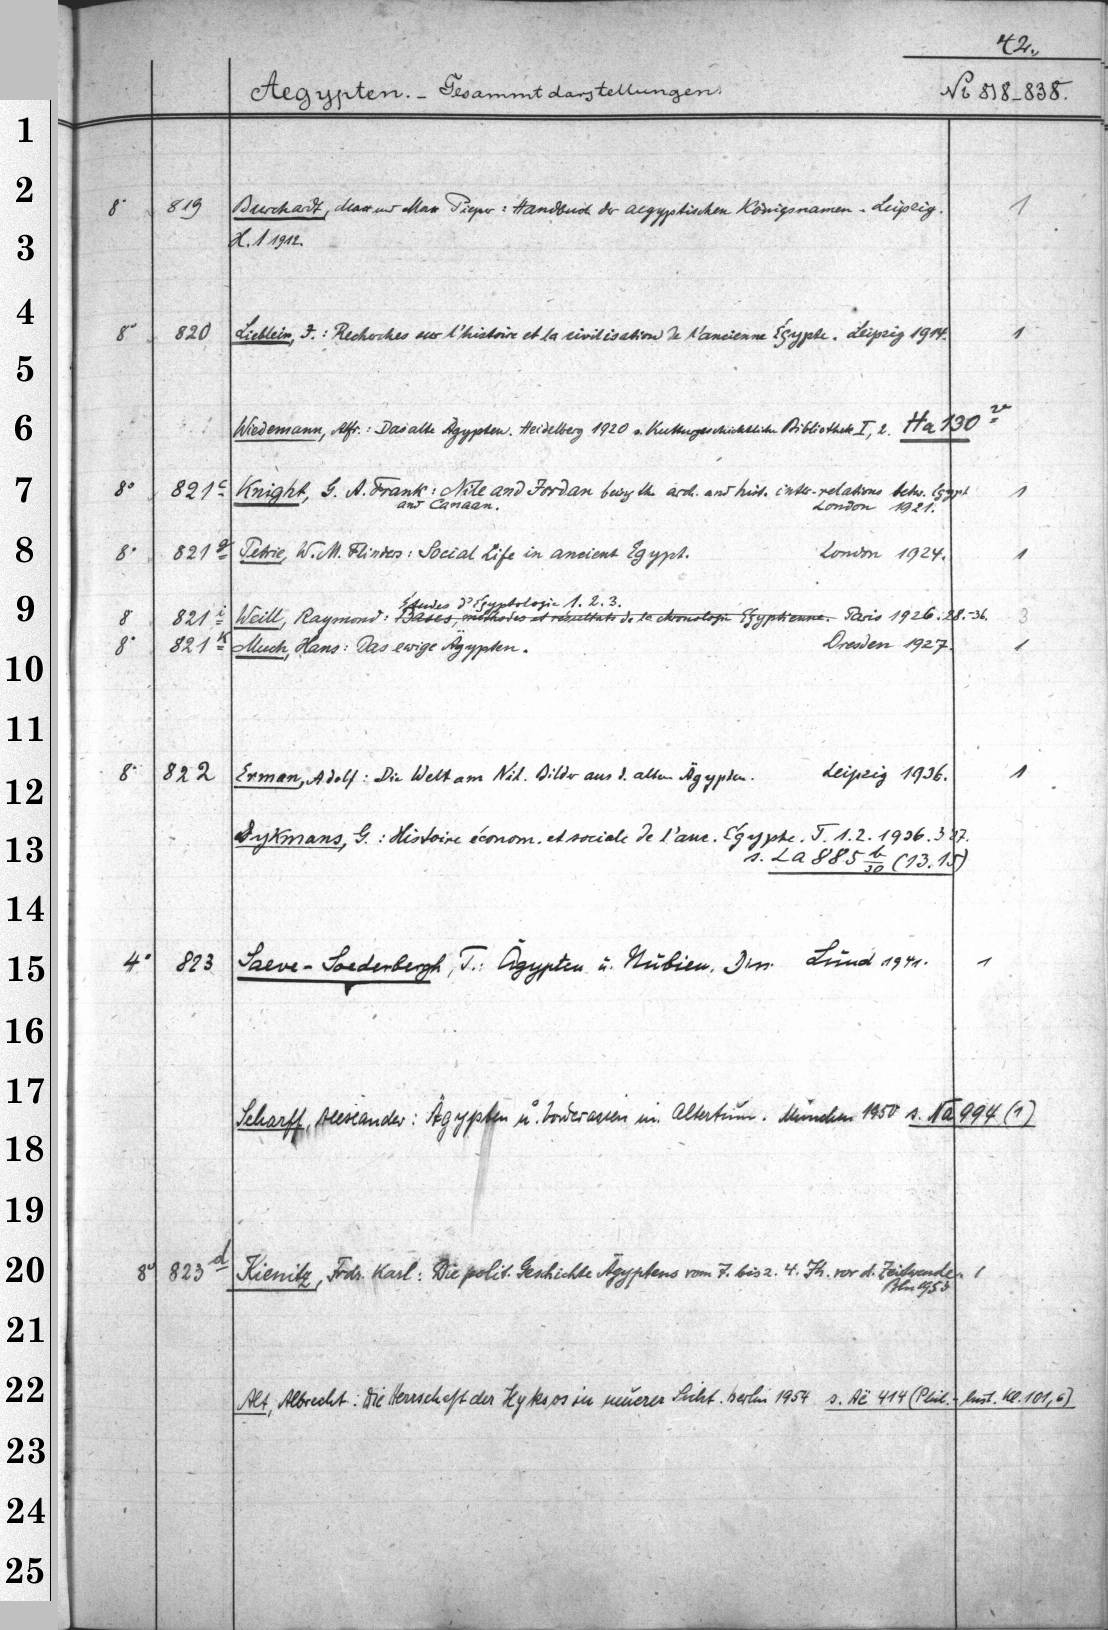 42.
Aegypten. - Gesammtdarstellungen.
Ni 818-838.
1
2
8° 819 Burchardt, Max und Max Pieper: Handbuch der aegyptischen Königsnamen - Leipzig. 1
3
H. 1 1912.
4
8° 820 Lieblein, J.: Recherches sur l'histoire et la civilisation de l'ancienne Égypte. Leipzig 1914. 1
5
6
Wiedemann, Alfr.: Das alte Ägypten. Heidelberg 1920 s. Kulturgeschichtliche Bibliothek I, 2. Ha 130
7
8° 821c Knight, G. A. Frank: Nile and Jordan being the arch. and hist. inter-relations betw. Egypt 1
and Canaan. London 1921.
8
8° 821g Petrie, W. M. Flinders: Social Life in ancient Egypt. London 1924. 1
9
Études d'Égyptologie 1. 2. 3.
8 821i Weill, Raymond: Bases, méthodes et résultats de la chronologie Égyptienne. Paris 1926. 28.-36. 3
8° 821k Much, Hans: Das ewige Ägypten. Dresden 1927. 1
10
11
8° 822 Erman, Adolf: Die Welt am Nil. Bilder aus d. alten Ägypten. Leipzig 1936. 1
12
Dykmans, G.: Histoire économ. et sociale de l'anc. Égypte. T. 1. 2. 1936. 37.
13
s. La 885 b/30 (13. 15)
14
4° 823 Saeve-Soederbergh, T.: Ägypten u. Nubien. Diss. Lund 1941. 1
15
16
17
Scharff, Alexander: Ägypten u. Vorderasien im Altertum. München 1950 s. Na 994 (1)
18
19
20
8° 823d Kienitz, Frdr. Karl: Die polit. Geschichte Ägyptens vom 7. bis z. 4. Jh. vor d. Zeitwende. 1
Bln 1953
21
22
Alt, Albrecht: Die Herrschaft der Hyksos in neuerer Sicht. Berlin 1954 s. Aë 414 (Phil.-hist. Kl. 101, 6)
23
24
25